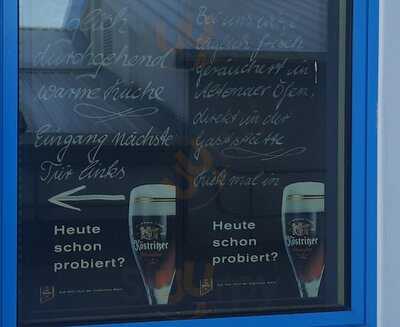 durchgehend
warme Küche
Eingang Nächste
Tür links
Heute
schon
probiert?
Köstritzer
Bei uns wird
täglich frisch
geräuchert in
Altonaer Öfen,
direkt in der
Gaststätte
Heute
schon
probiert?
Köstritzer